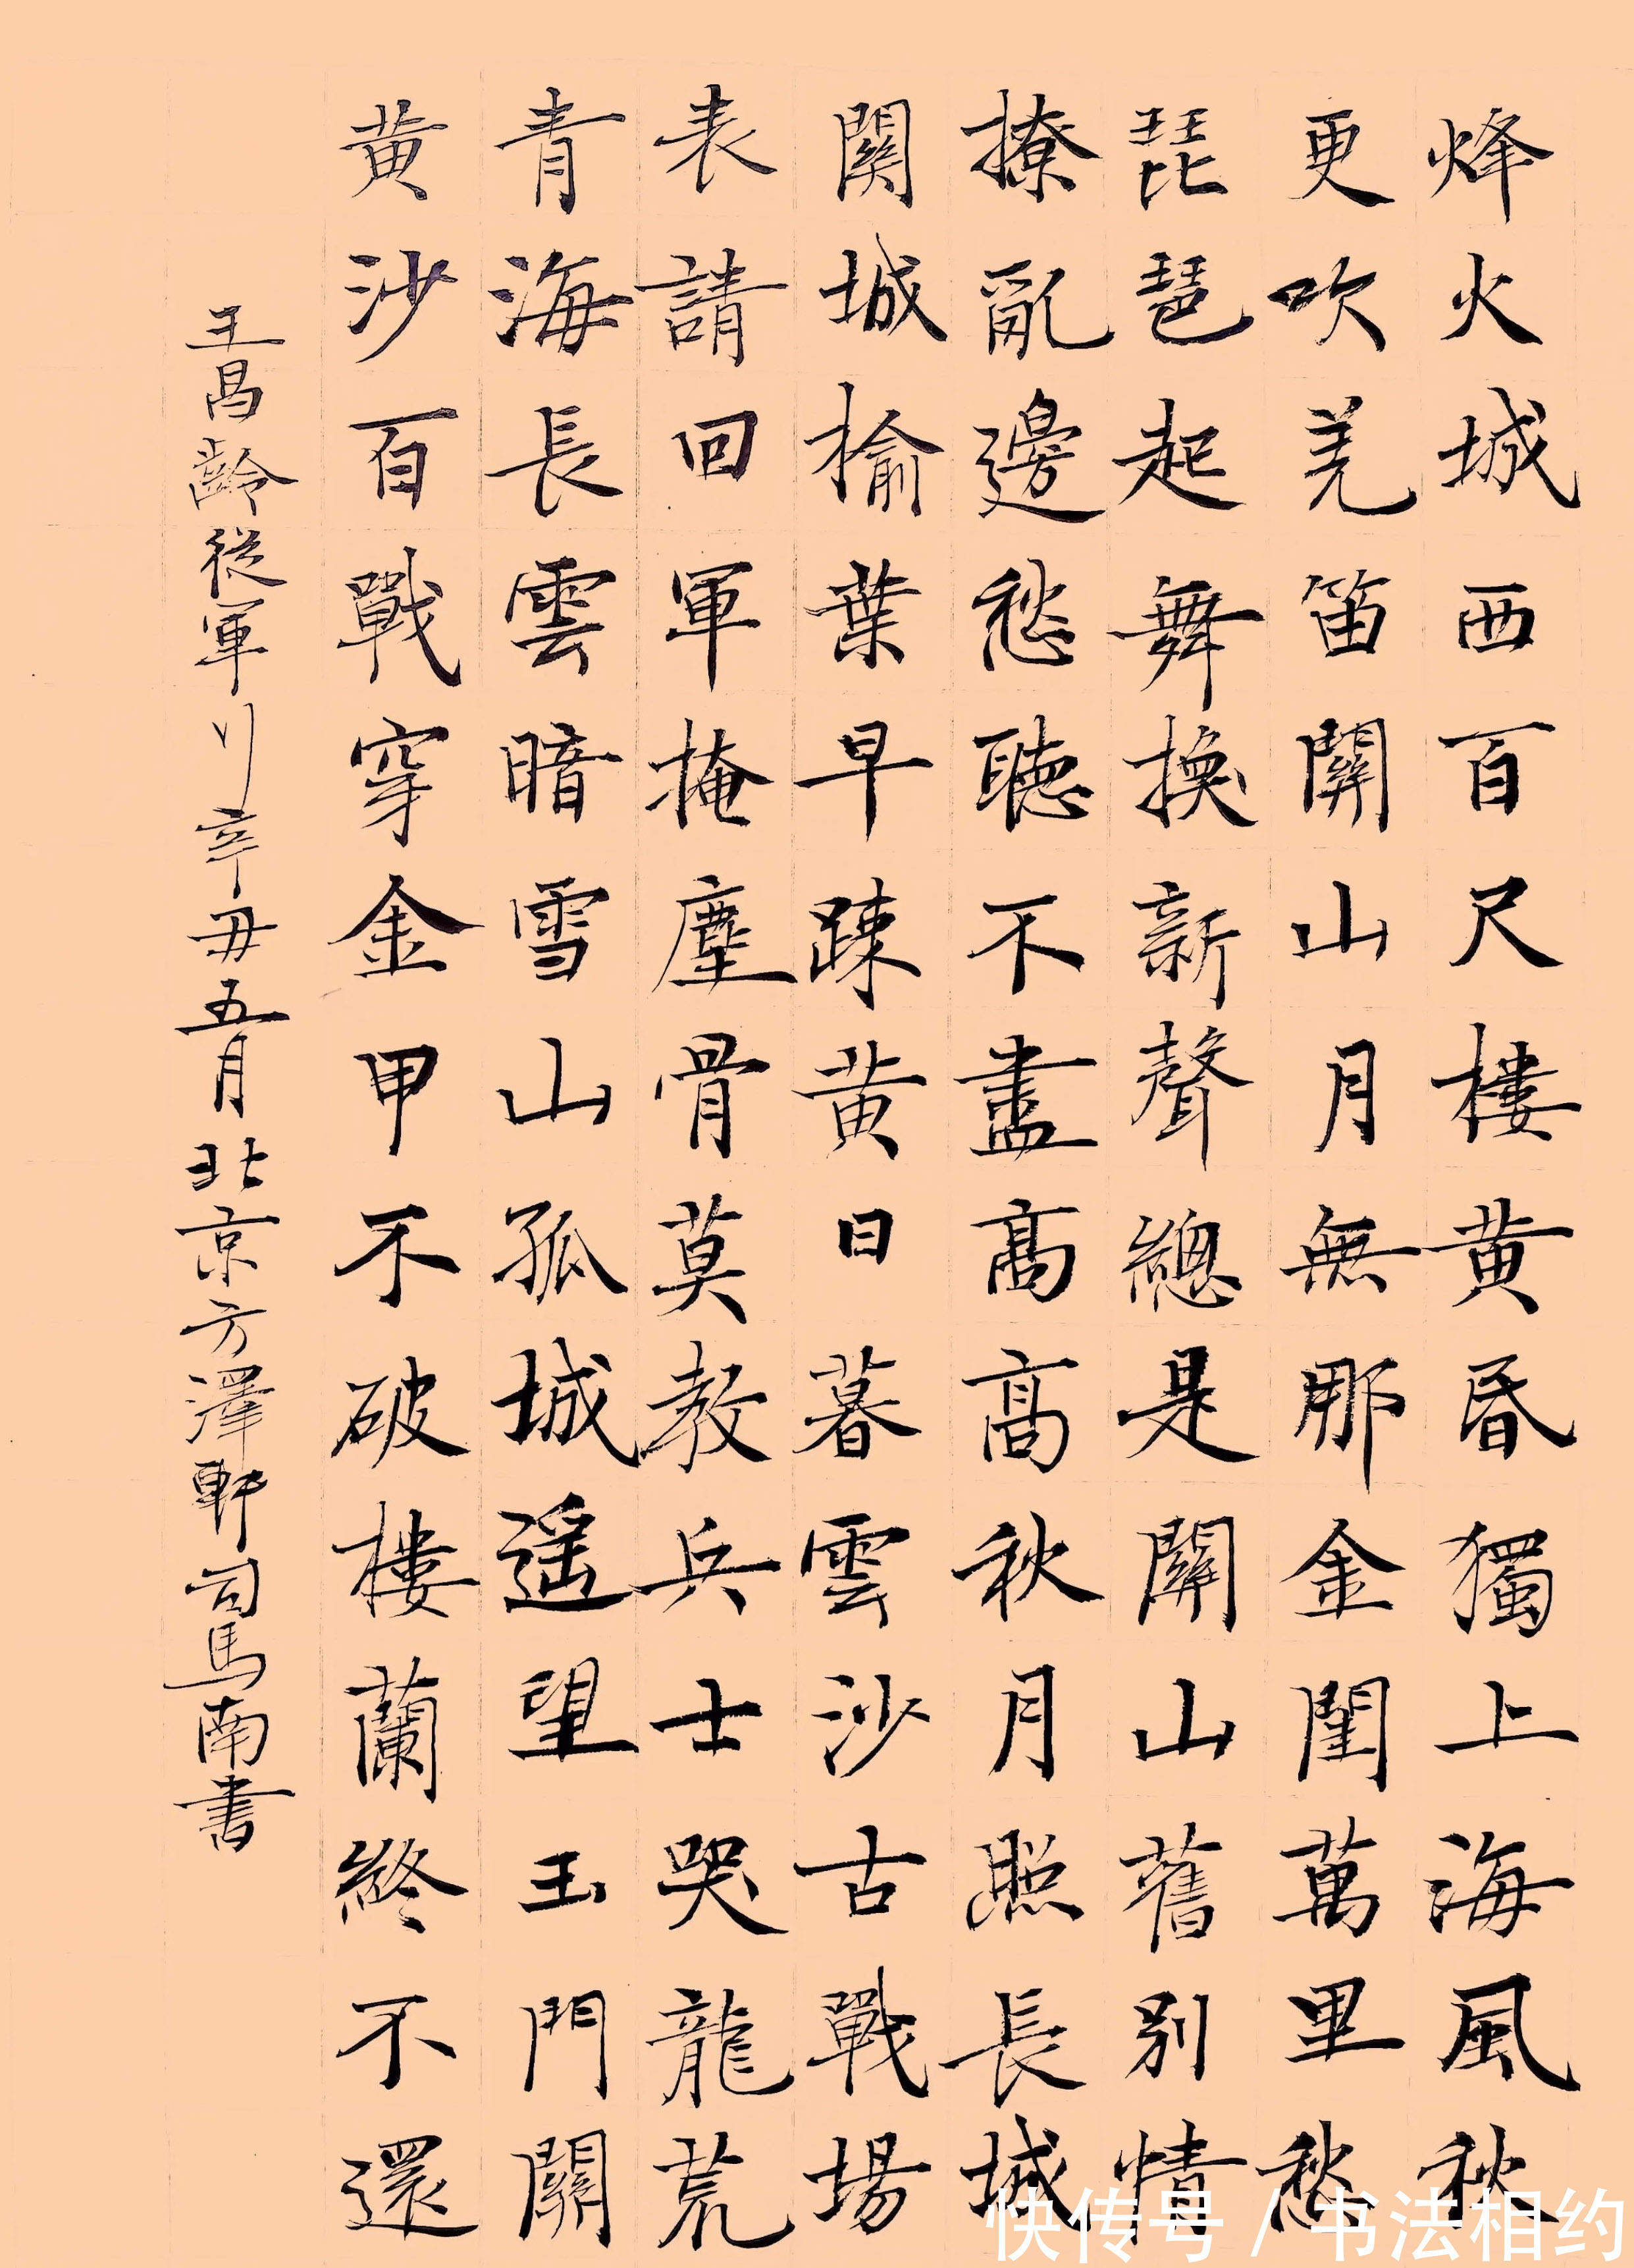 烽火城西百尺樓黄昏獨上海風秋
更吹羌笛關山月無那金閨萬里愁
琵琶起舞換新聲總是關山舊別情
撩亂邊愁聽不盡高高秋月照長城
關城榆葉早踈黄日暮雲沙古戰場
表請回軍掩塵骨莫教兵士哭龍荒
青海長雲暗雪山孤城遥望玉門關
黄沙百戰穿金甲不破樓蘭終不還
王昌齡從軍行辛丑五月北京方澤軒司馬南書
快传号/书法相约